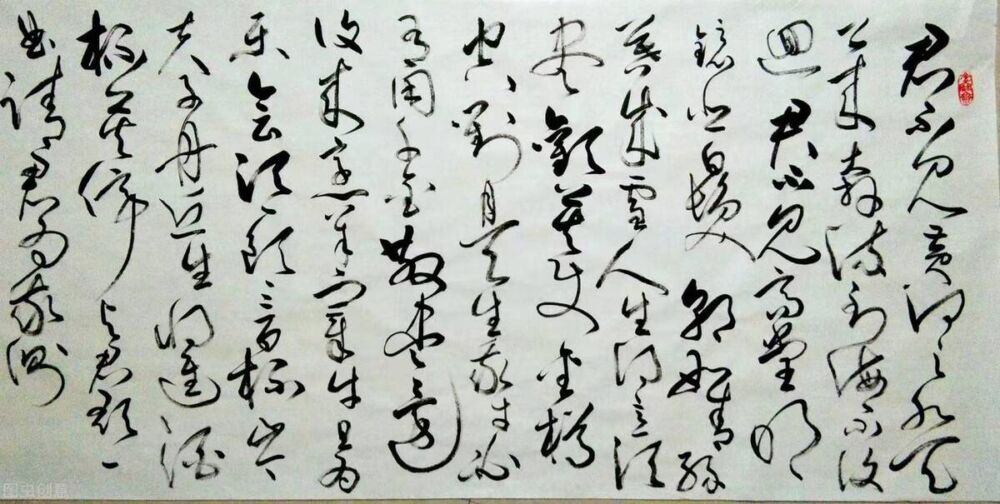 君不见黄河之水天
上来奔流到海不復
迴君不见高堂明
鏡悲白髮朝如青絲
暮成雪人生得意須
盡歡莫使金樽
空對月天生我才必
有用千金散盡還
復来烹羊宰牛且为
乐会須一飲三百杯岑
夫子丹丘生将進酒
杯莫停与君歌一
曲請君为我側
图虫创意